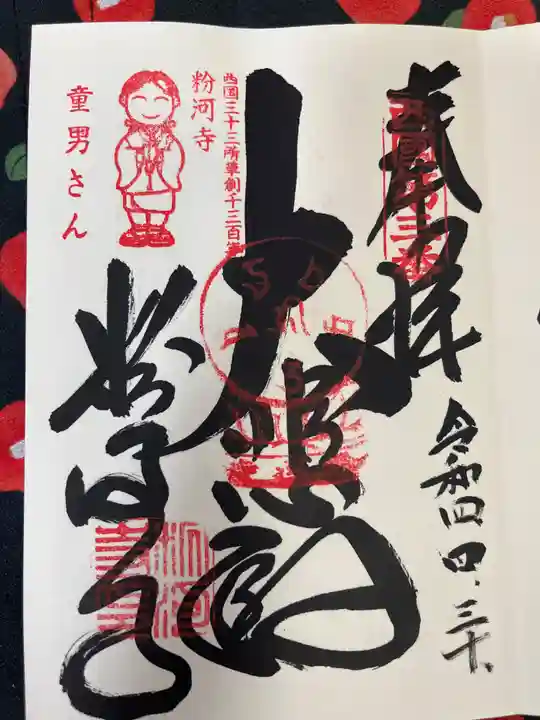 奉拝
西國第三番
令和四、四、三十、
大悲殿
西国三十三所草創千三百年
粉河寺
童男さん
粉河寺